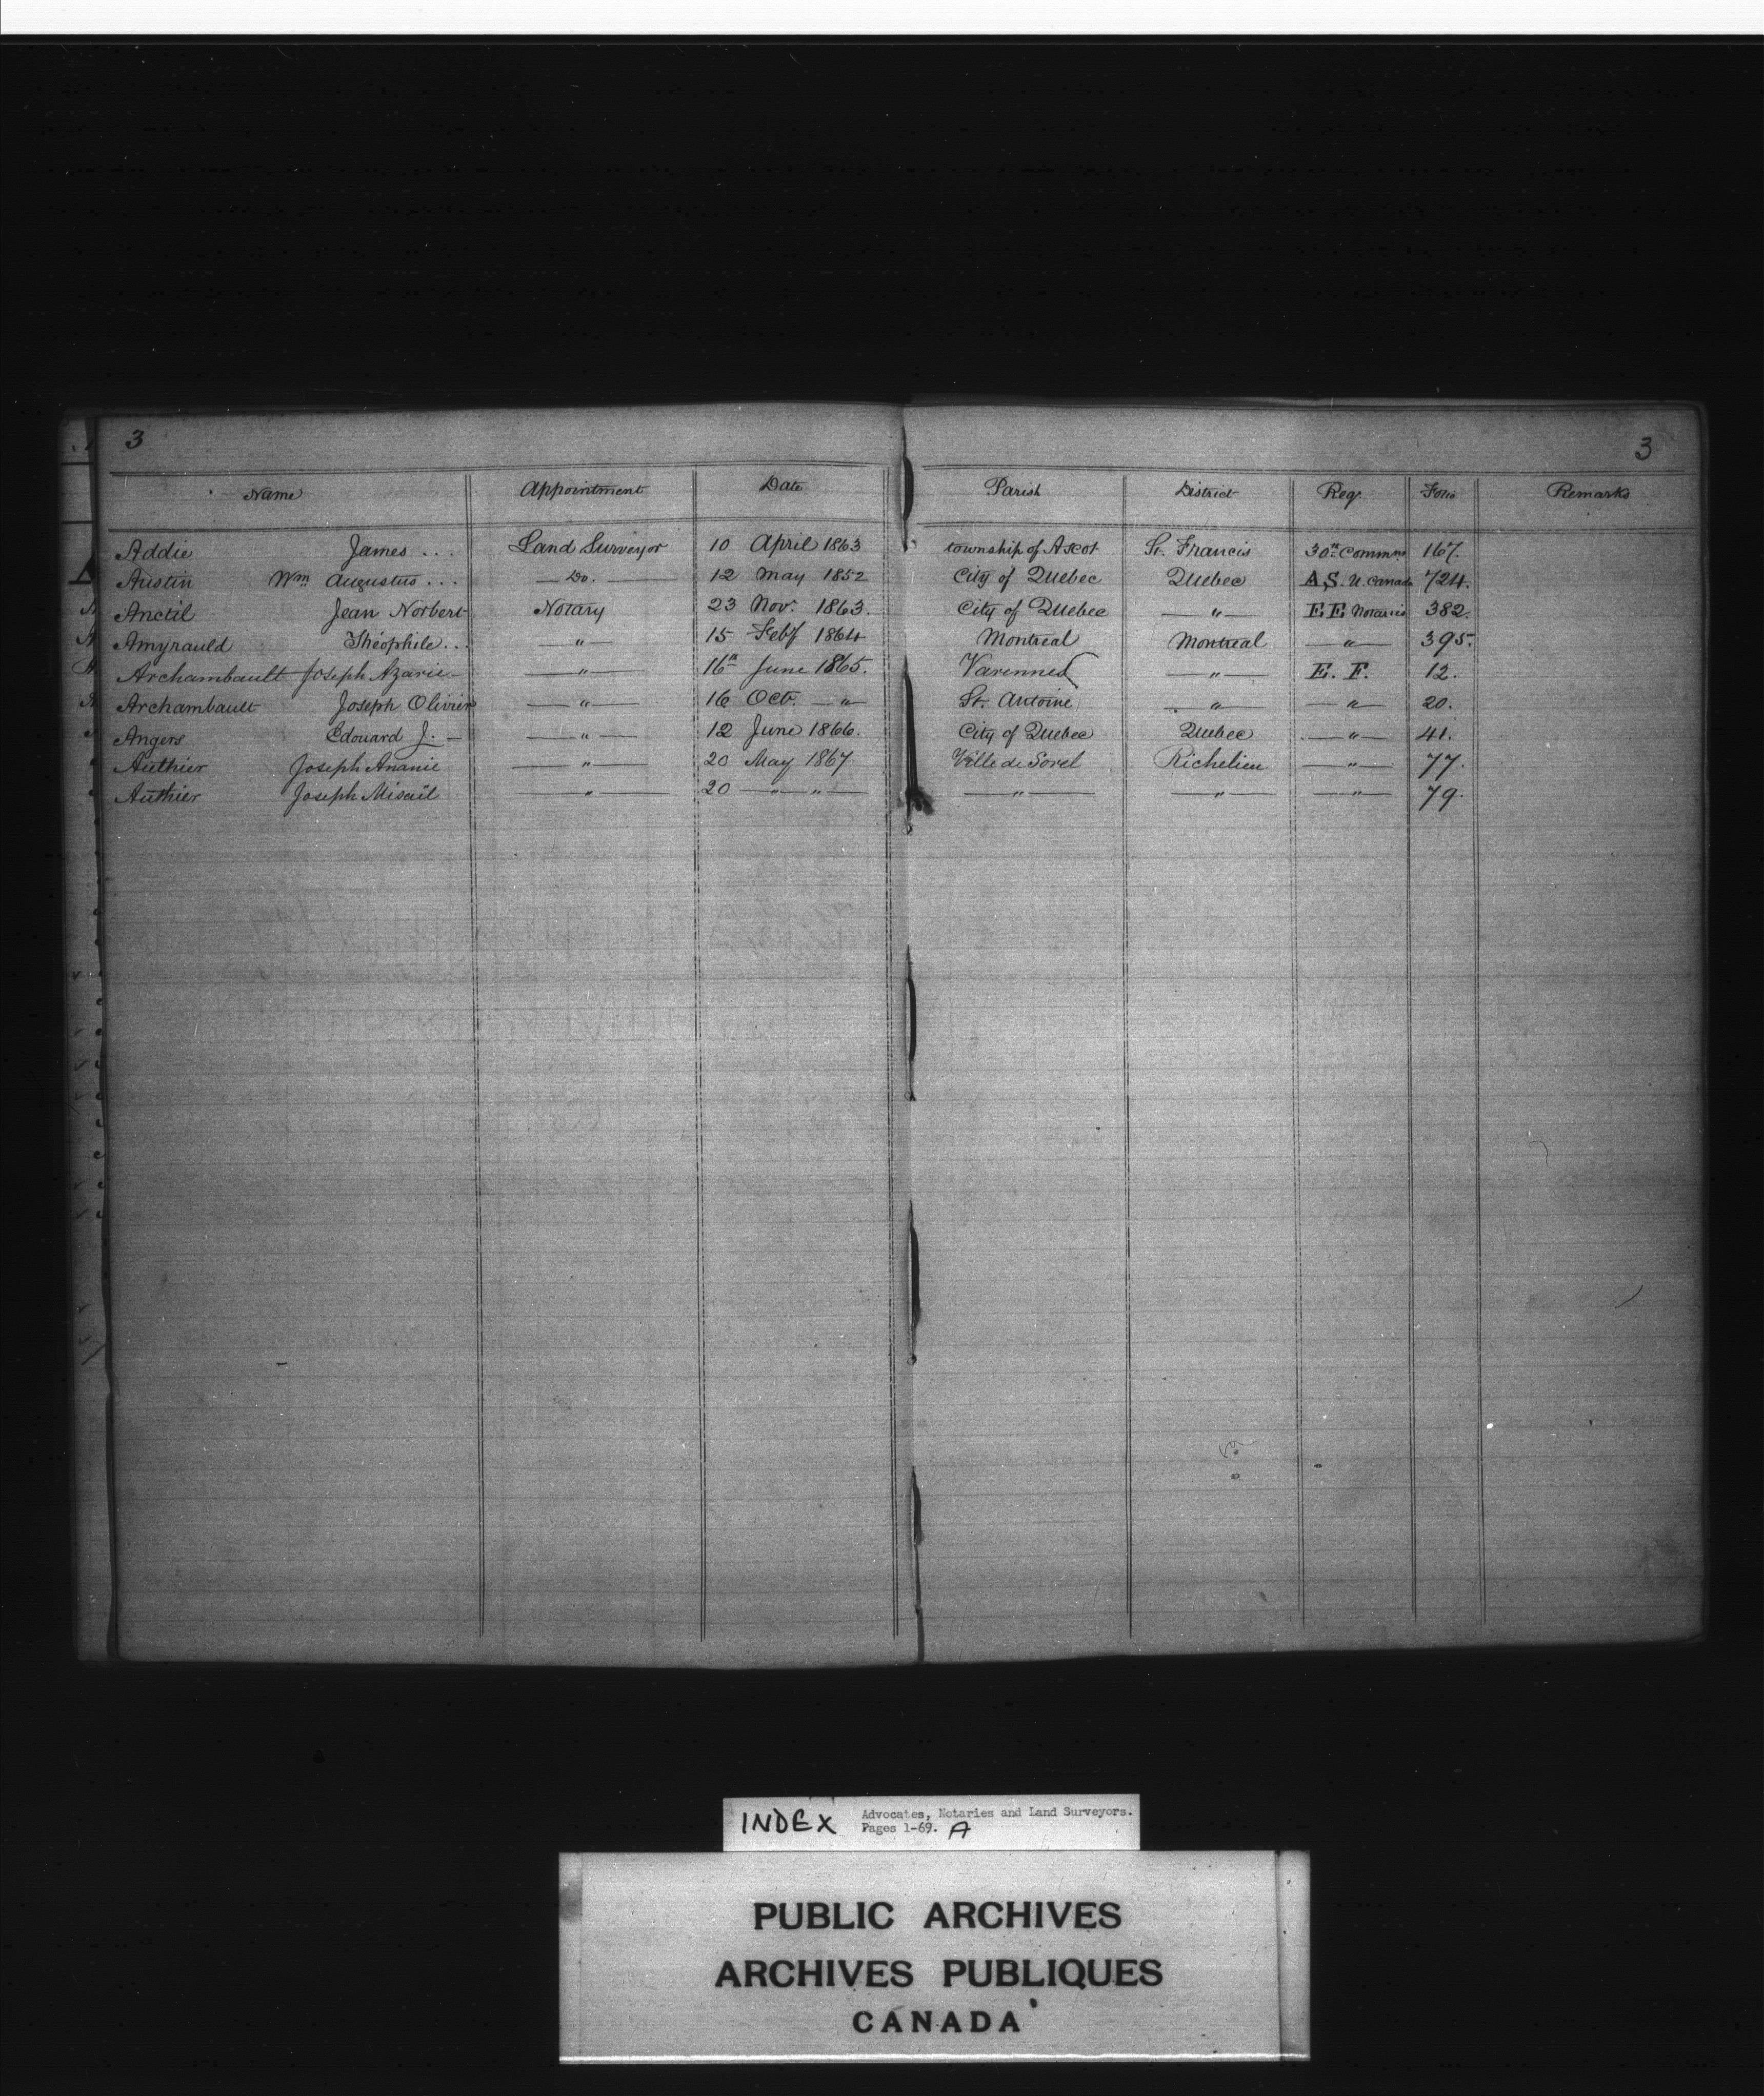 3 3
Name Appointment Date Parish District Reg. Folio Remarks
Addie James ... Land Surveyor 10 April 1863 township of Ascot St. Francis 30th Commns 167.
Austin Wm Augustus ... — Do. — 12 May 1852 City of Quebec Quebec A.S. U. Canada 724.
Anctil Jean Norbert Notary 23 Nov. 1863. City of Quebec — " — E E Notaries 382.
Amyrauld Théophile.. — " — 15 Feby 1864 Montreal Montreal — " — 395.
Archambault Joseph Azarie — " — 16th June 1865. Varennes — " — E. F. 12.
Archambault Joseph Olivier — " — 16 Oct. — " — St. Antoine — " — — " — 20.
Angers Edouard J. — — " — 12 June 1866. City of Quebec Quebec — " — 41.
Authier Joseph Ananie — " — 20 May 1867 Ville de Sorel Richelieu — " — 77.
Authier Joseph Misaël — " — 20 — " — " — — " — — " — — " — 79.
INDEX Advocates, Notaries and Land Surveyors.
Pages 1-69. A
PUBLIC ARCHIVES
ARCHIVES PUBLIQUES
CANADA